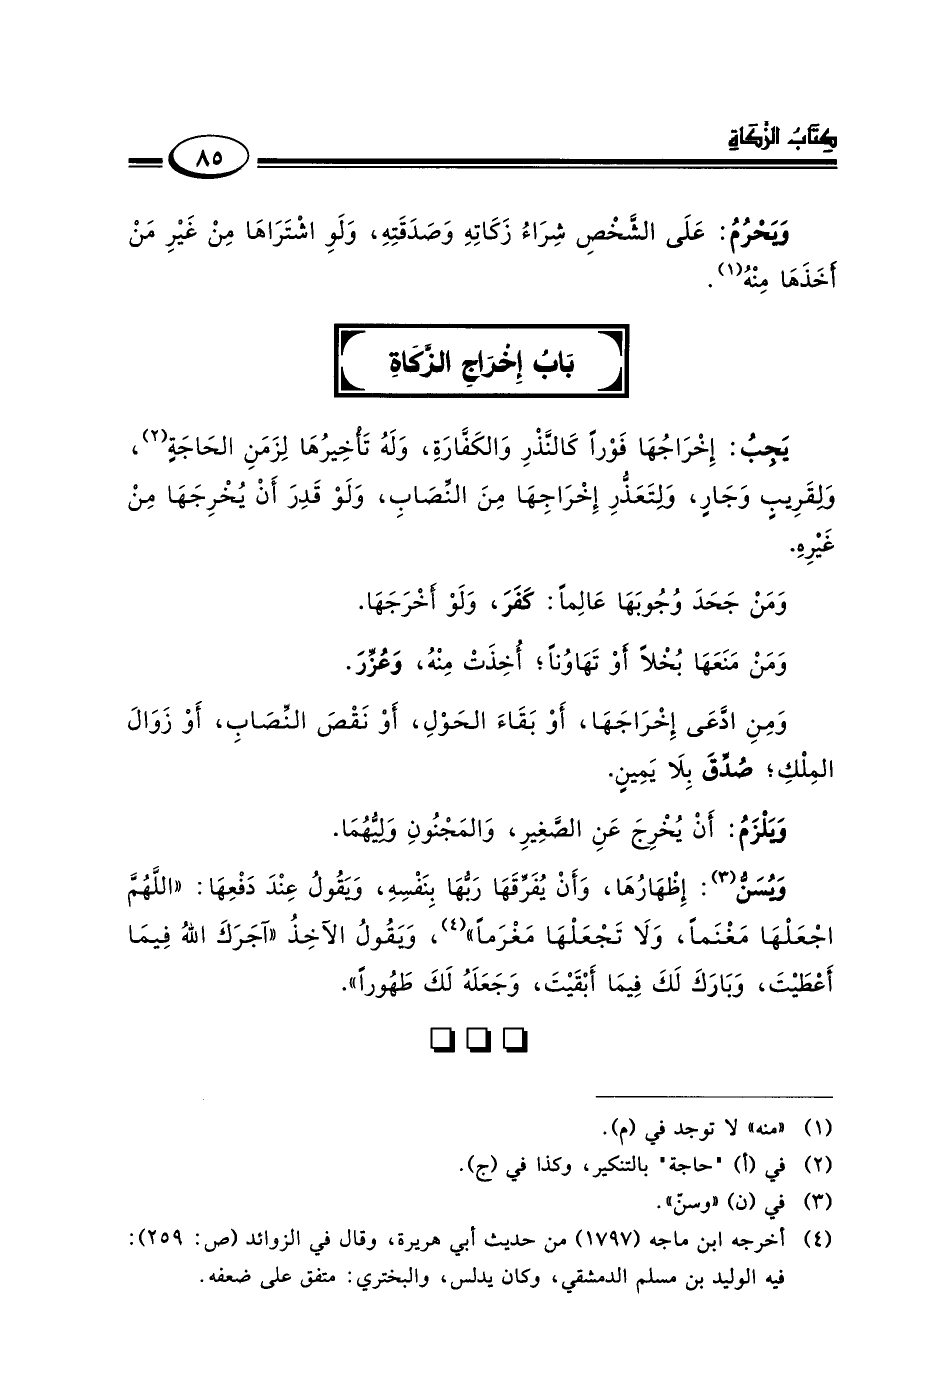 كِتَابُ الزَّكَاةِ
٨٥
وَيَحْرُمُ: عَلَى الشَّخْصِ شِرَاءُ زَكَاتِهِ وَصَدَقَتِهِ، وَلَوِ اشْتَرَاهَا مِنْ غَيْرِ مَنْ
أَخَذَهَا مِنْهُ(١).
بَابُ إِخْرَاجِ الزَّكَاةِ
يَجِبُ: إِخْرَاجُهَا فَوْراً كَالنَّذْرِ وَالكَفَّارَةِ، وَلَهُ تَأْخِيرُهَا لِزَمَنِ الحَاجَةِ(٢)،
وَلِقَرِيبٍ وَجَارٍ، وَلِتَعَذُّرِ إِخْرَاجِهَا مِنَ النِّصَابِ، وَلَوْ قَدِرَ أَنْ يُخْرِجَهَا مِنْ
غَيْرِهِ.
وَمَنْ جَحَدَ وُجُوبَهَا عَالِماً: كَفَرَ، وَلَوْ أَخْرَجَهَا.
وَمَنْ مَنَعَهَا بُخْلاً أَوْ تَهَاوُناً؛ أُخِذَتْ مِنْهُ، وَعُزِّرَ.
وَمِنِ ادَّعَى إِخْرَاجَهَا، أَوْ بَقَاءَ الحَوْلِ، أَوْ نَقْصَ النِّصَابِ، أَوْ زَوَالَ
المِلْكِ؛ صُدِّقَ بِلَا يَمِينٍ.
وَيَلْزَمُ: أَنْ يُخْرِجَ عَنِ الصَّغِيرِ، وَالمَجْنُونِ وَلِيُّهُمَا.
وَيُسَنُّ(٣): إِظْهَارُهَا، وَأَنْ يُفَرِّقَهَا رَبُّهَا بِنَفْسِهِ، وَيَقُولُ عِنْدَ دَفْعِهَا: «اللَّهُمَّ
اجْعَلْهَا مَغْنَماً، وَلَا تَجْعَلْهَا مَغْرَماً»(٤)، وَيَقُولُ الآخِذُ «آجَرَكَ اللهُ فِيمَا
أَعْطَيْتَ، وَبَارَكَ لَكَ فِيمَا أَبْقَيْتَ، وَجَعَلَهُ لَكَ طَهُوراً».
(١) «منه» لا توجد في (م).
(٢) في (أ) "حاجة" بالتنكير، وكذا في (ج).
(٣) في (ن) «وسنّ».
(٤) أخرجه ابن ماجه (١٧٩٧) من حديث أبي هريرة، وقال في الزوائد (ص: ٢٥٩):
فيه الوليد بن مسلم الدمشقي، وكان يدلس، والبختري: متفق على ضعفه.